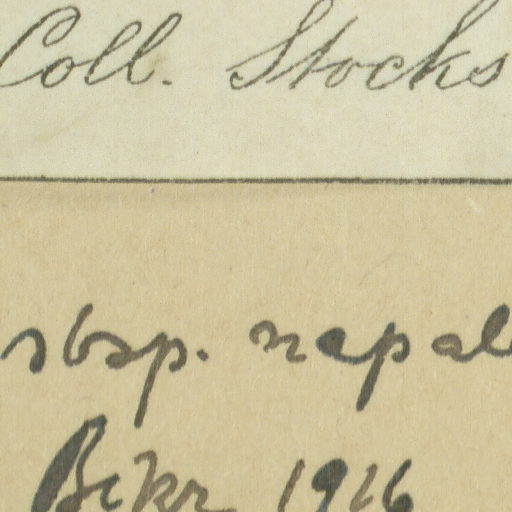 Coll. Stocks
sbsp. napal
Bekr 1916